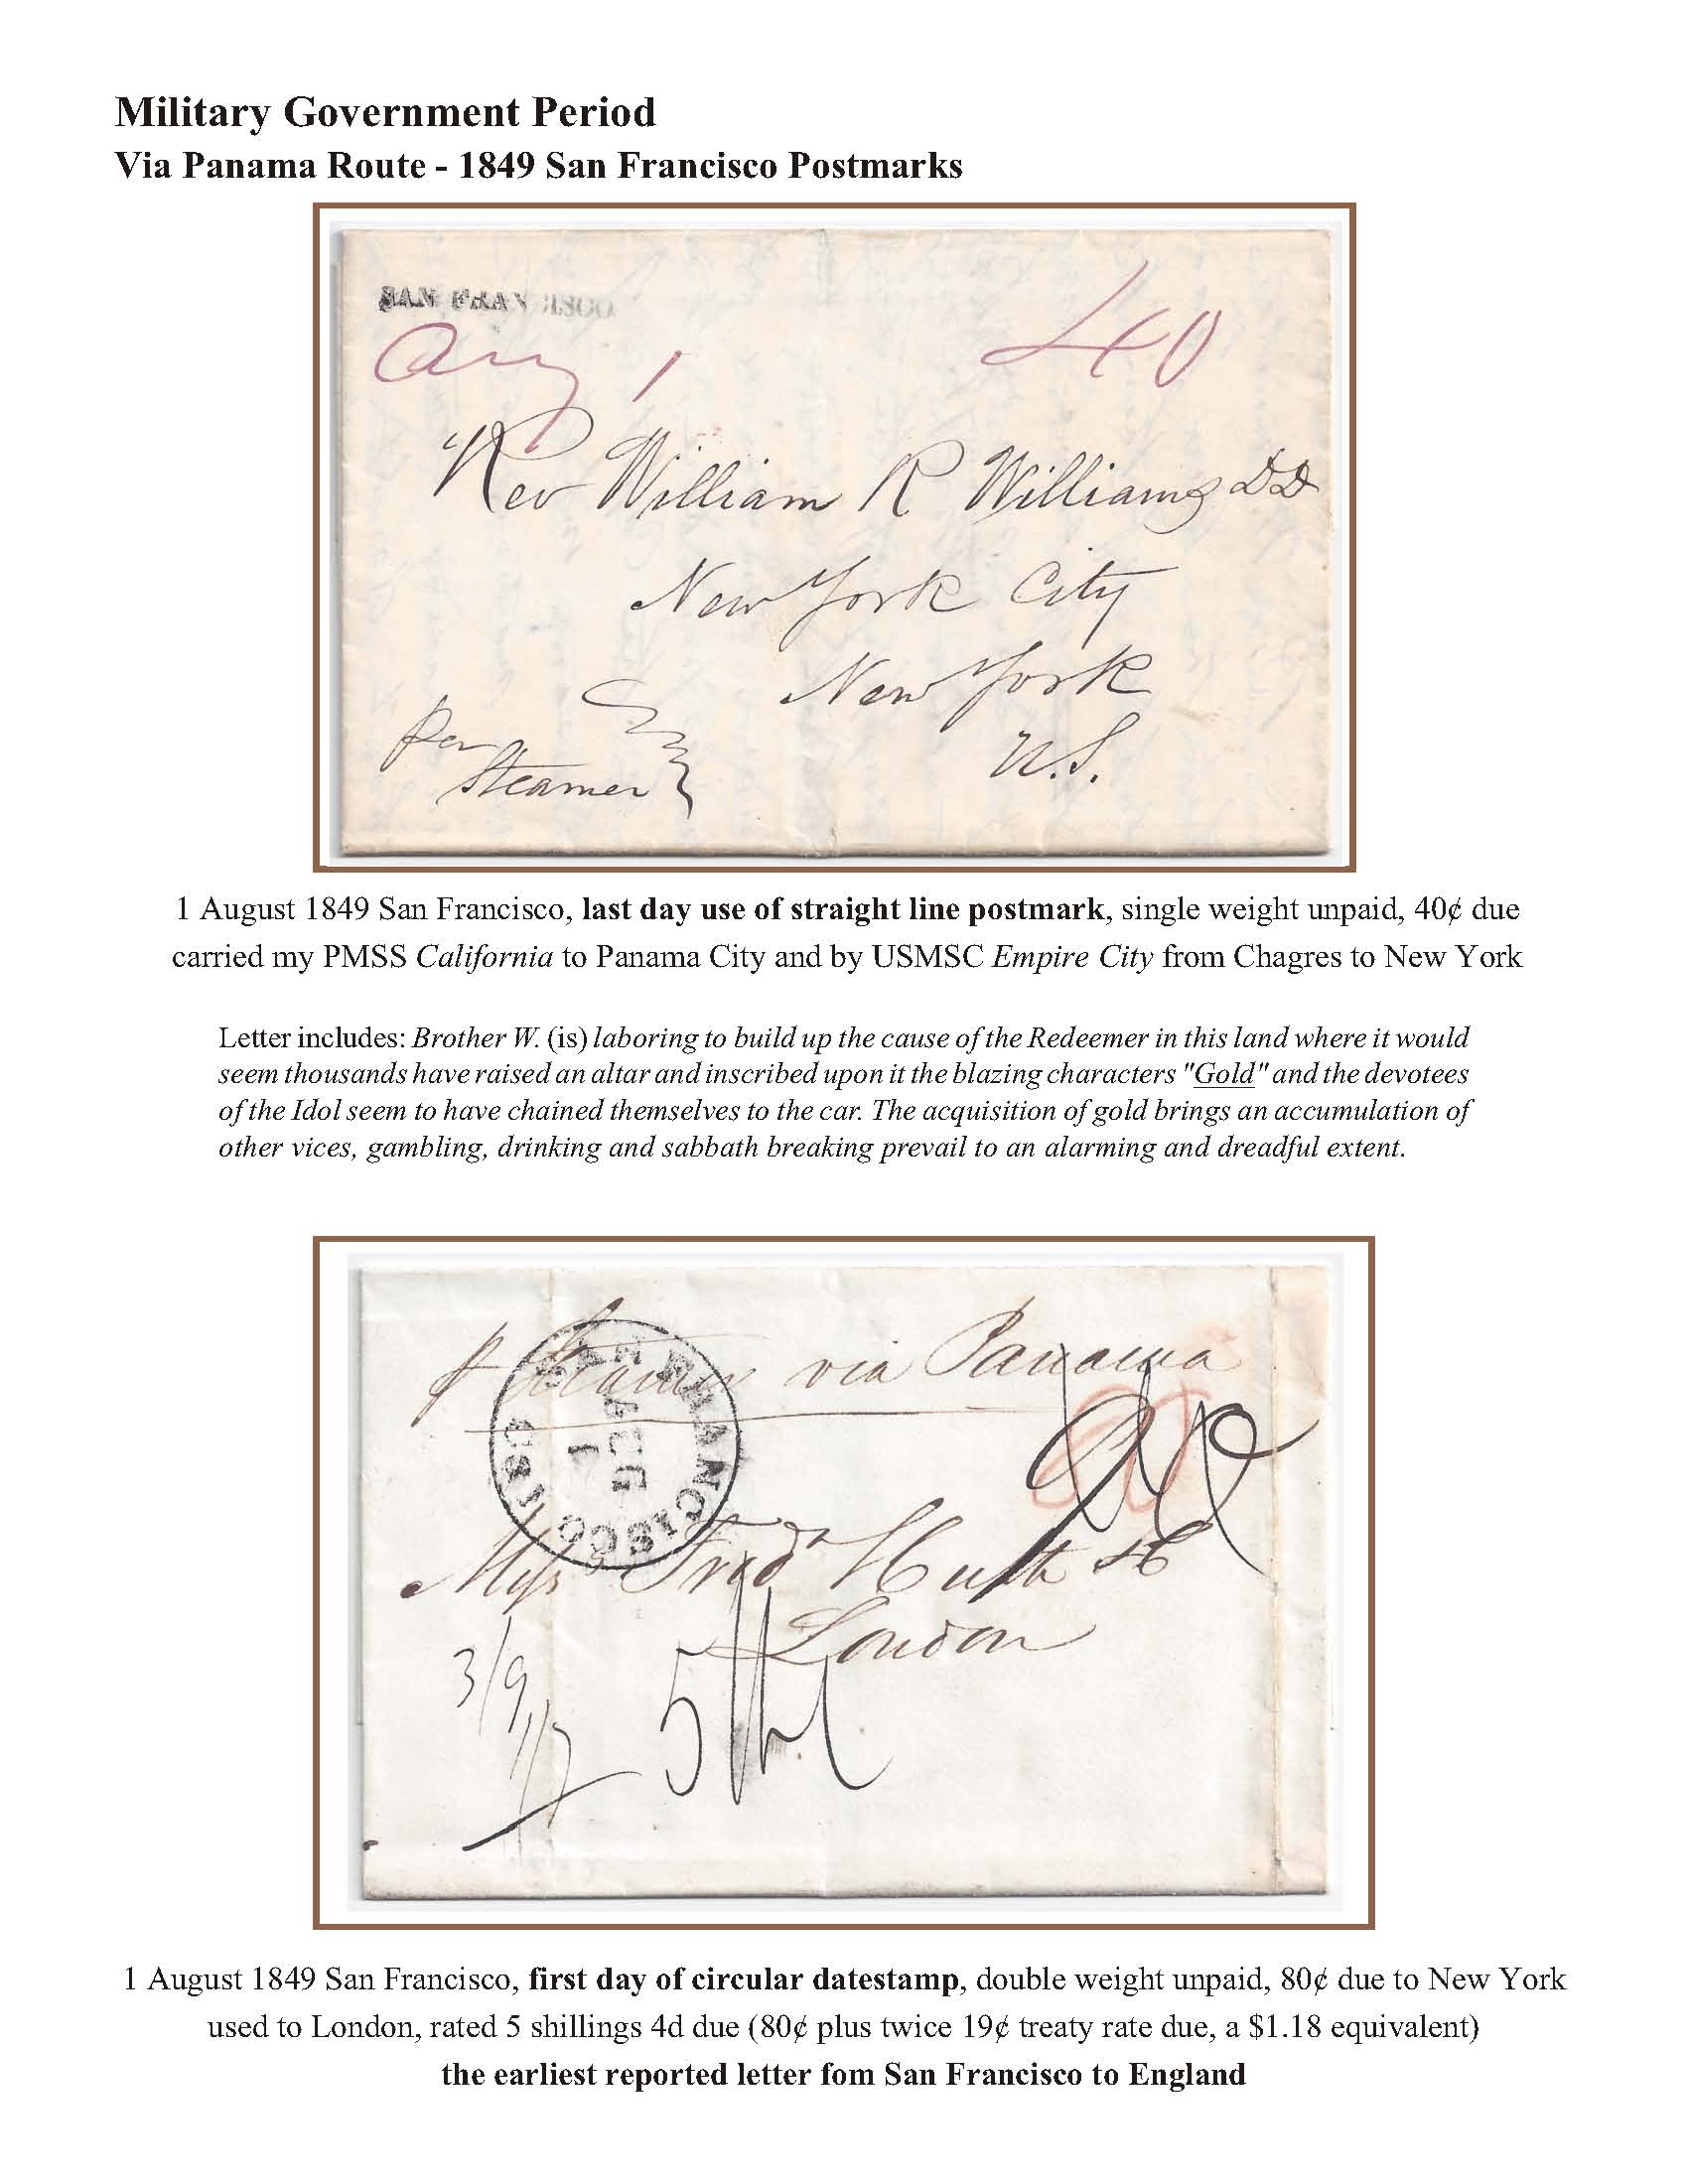 Military Government Period
Via Panama Route - 1849 San Francisco Postmarks
SAN FRANCISCO
Aug 1 40
Rev William R Williams DD
New York City
New York
U.S.
per
Steamer
1 August 1849 San Francisco, last day use of straight line postmark, single weight unpaid, 40¢ due
carried my PMSS California to Panama City and by USMSC Empire City from Chagres to New York
Letter includes: Brother W. (is) laboring to build up the cause of the Redeemer in this land where it would
seem thousands have raised an altar and inscribed upon it the blazing characters "Gold" and the devotees
of the Idol seem to have chained themselves to the car. The acquisition of gold brings an accumulation of
other vices, gambling, drinking and sabbath breaking prevail to an alarming and dreadful extent.
p Steamer via Panama
SAN FRANCISCO
AUG
1
80
Mess Fredk Huth &
London
3/9
1/7
5/4
1 August 1849 San Francisco, first day of circular datestamp, double weight unpaid, 80¢ due to New York
used to London, rated 5 shillings 4d due (80¢ plus twice 19¢ treaty rate due, a $1.18 equivalent)
the earliest reported letter fom San Francisco to England